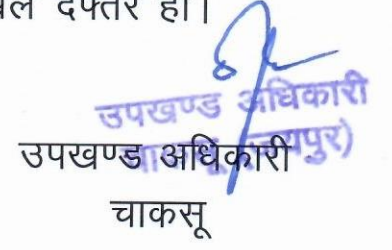 दफ्तर हो।
उपखण्ड अधिकारी
उपखण्ड अधिकारी
चाकसू